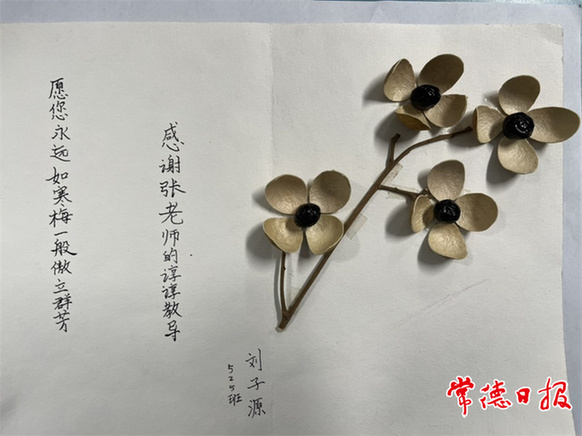 感谢张老师的谆谆教导
愿您永远如寒梅一般傲立群芳
刘子源
525班
常德日报